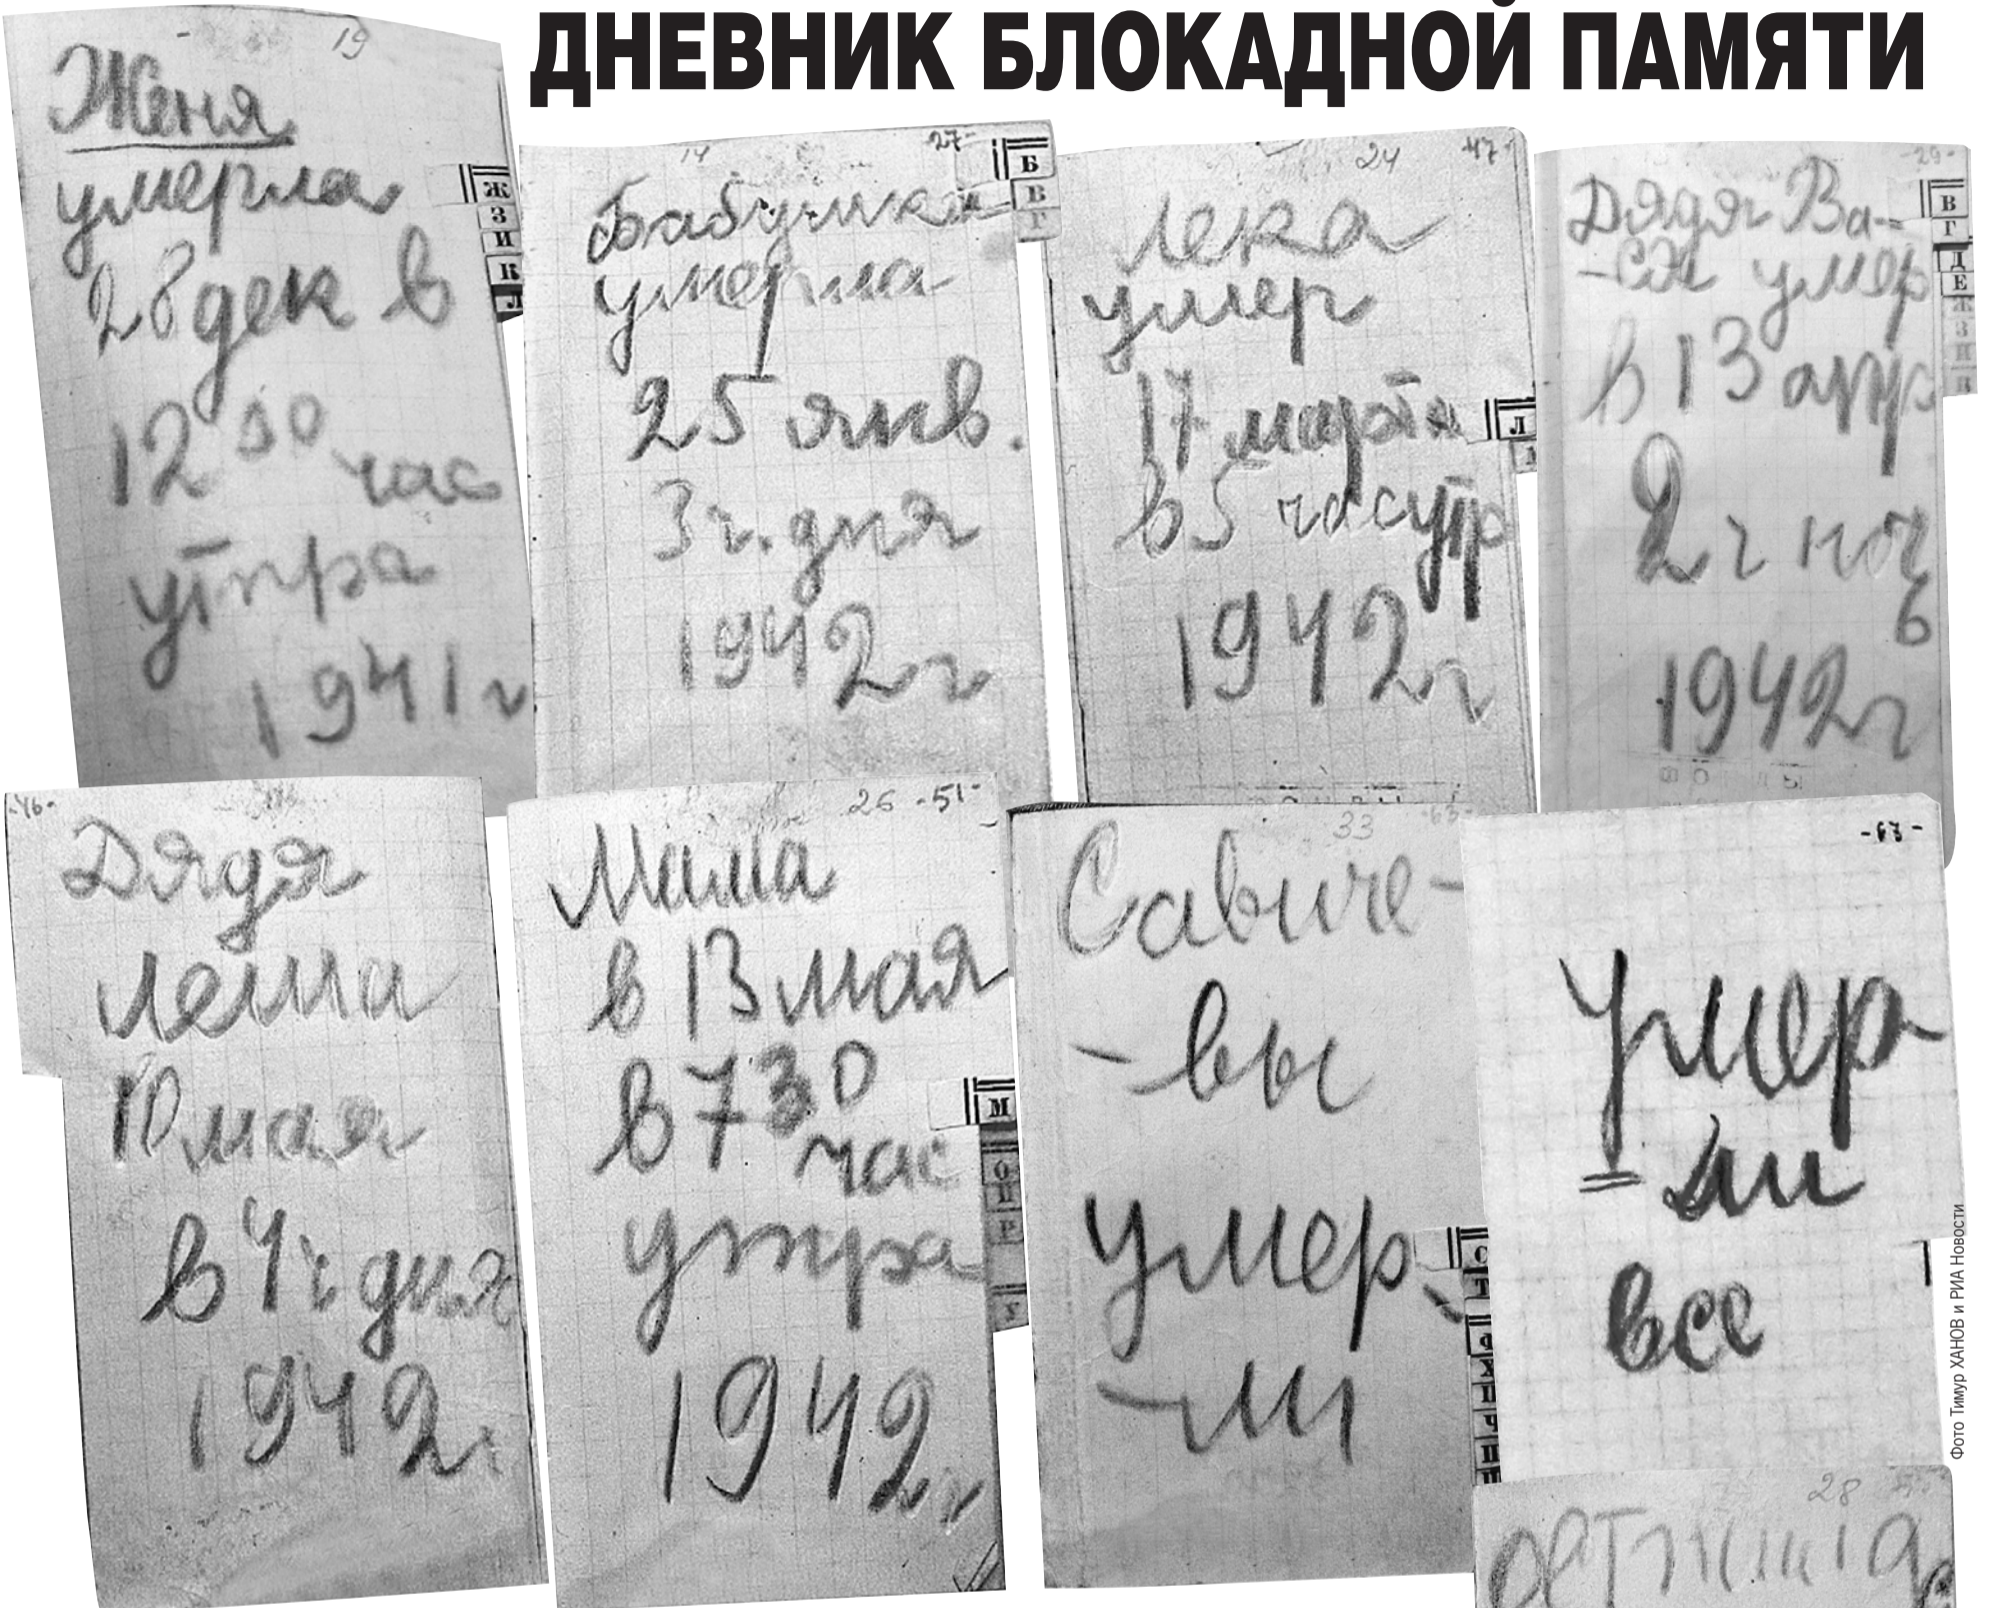 ДНЕВНИК БЛОКАДНОЙ ПАМЯТИ
19
Женя
умерла
28 дек в
12 30 час
утра
1941 г
Ж
З
И
К
Л
14 27-
Бабушка
умерла
25 янв.
3 ч. дня
1942 г
Б
В
Г
24 -47-
Лека
умер
17 марта
в 5 часутр
1942 г
Л
-29-
Дядя Ва-
-ся умер
в 13 апр
2 ч ноч
ь
1942 г
В
Г
Д
Е
Ж
З
И
К
-46-
Дядя
Леша
10 мая
в 4 ч дня
1942 г
26 -51-
Мама
в 13 мая
в 7 30
час
утра
1942 г
М
О
П
Р
У
33 -63-
Савиче-
-вы
умер-
-ли
С
-63-
Умер
= ли
все
28
Фото Тимур ХАНОВ и РИА Новости